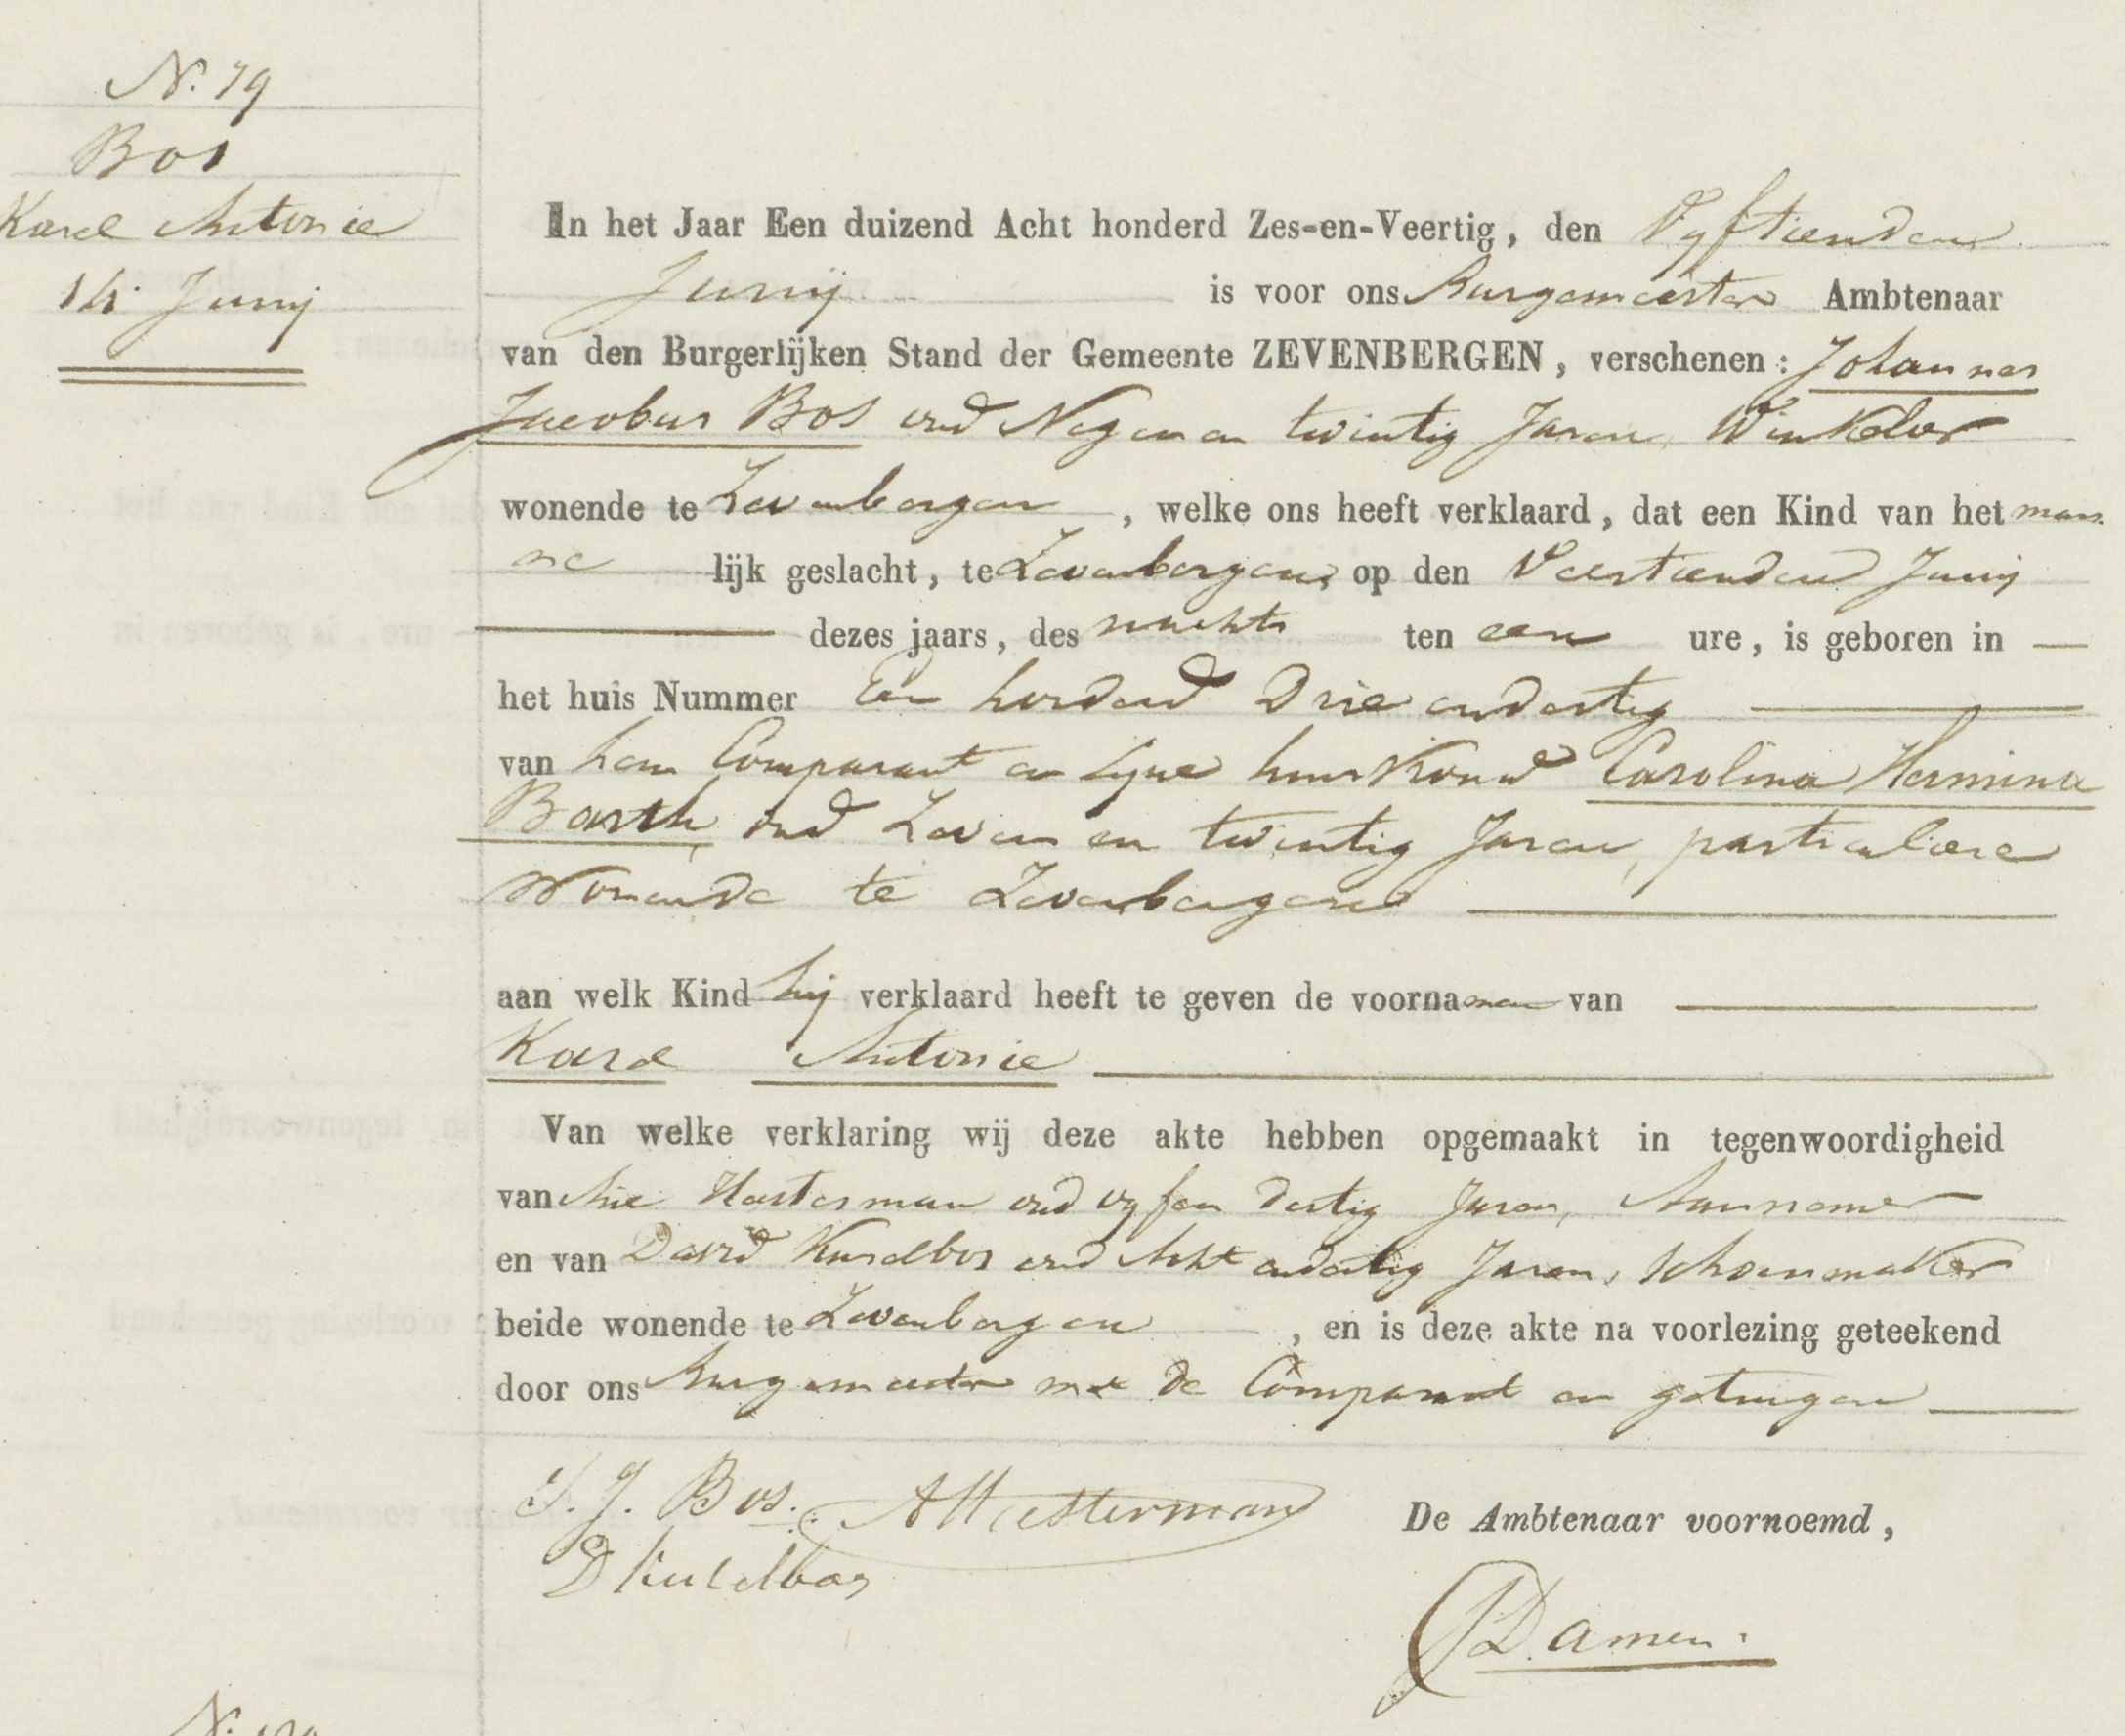 N. 79
Bos
Karel Antonie
14 Junij
In het Jaar Een duizend Acht honderd Zes-en-Veertig, den Vyftienden
Junij is voor ons Burgemeester Ambtenaar
van den Burgerlijken Stand der Gemeente ZEVENBERGEN, verschenen: Johannes
Jacobus Bos oud Negen en twintig Jaren, Winkelier
wonende te Zevenbergen, welke ons heeft verklaard, dat een Kind van het man
ne lijk geslacht, te Zevenbergen, op den Veertienden Junij
dezes jaars, des nachts ten een ure, is geboren in
het huis Nummer Een honderd Drie en dertig
van hem Comparant en zyne huisvrouw Carolina Hermina
Barth, oud Zeven en twintig Jaren, particuliere
Wonende te Zevenbergen
aan welk Kind hij verklaard heeft te geven de voornamen van
Karel Antonie
Van welke verklaring wij deze akte hebben opgemaakt in tegenwoordigheid
van Arie Hasterman oud vyf en dertig Jaren, Aannemer
en van David Kuselbos oud Acht en dertig Jaren, Schoenmaker
beide wonende te Zevenbergen, en is deze akte na voorlezing geteekend
door ons Burgemeester met de Comparant en getuigen
J. J. Bos. AHasterman
De Ambtenaar voornoemd,
D Kuselbos
Damen.